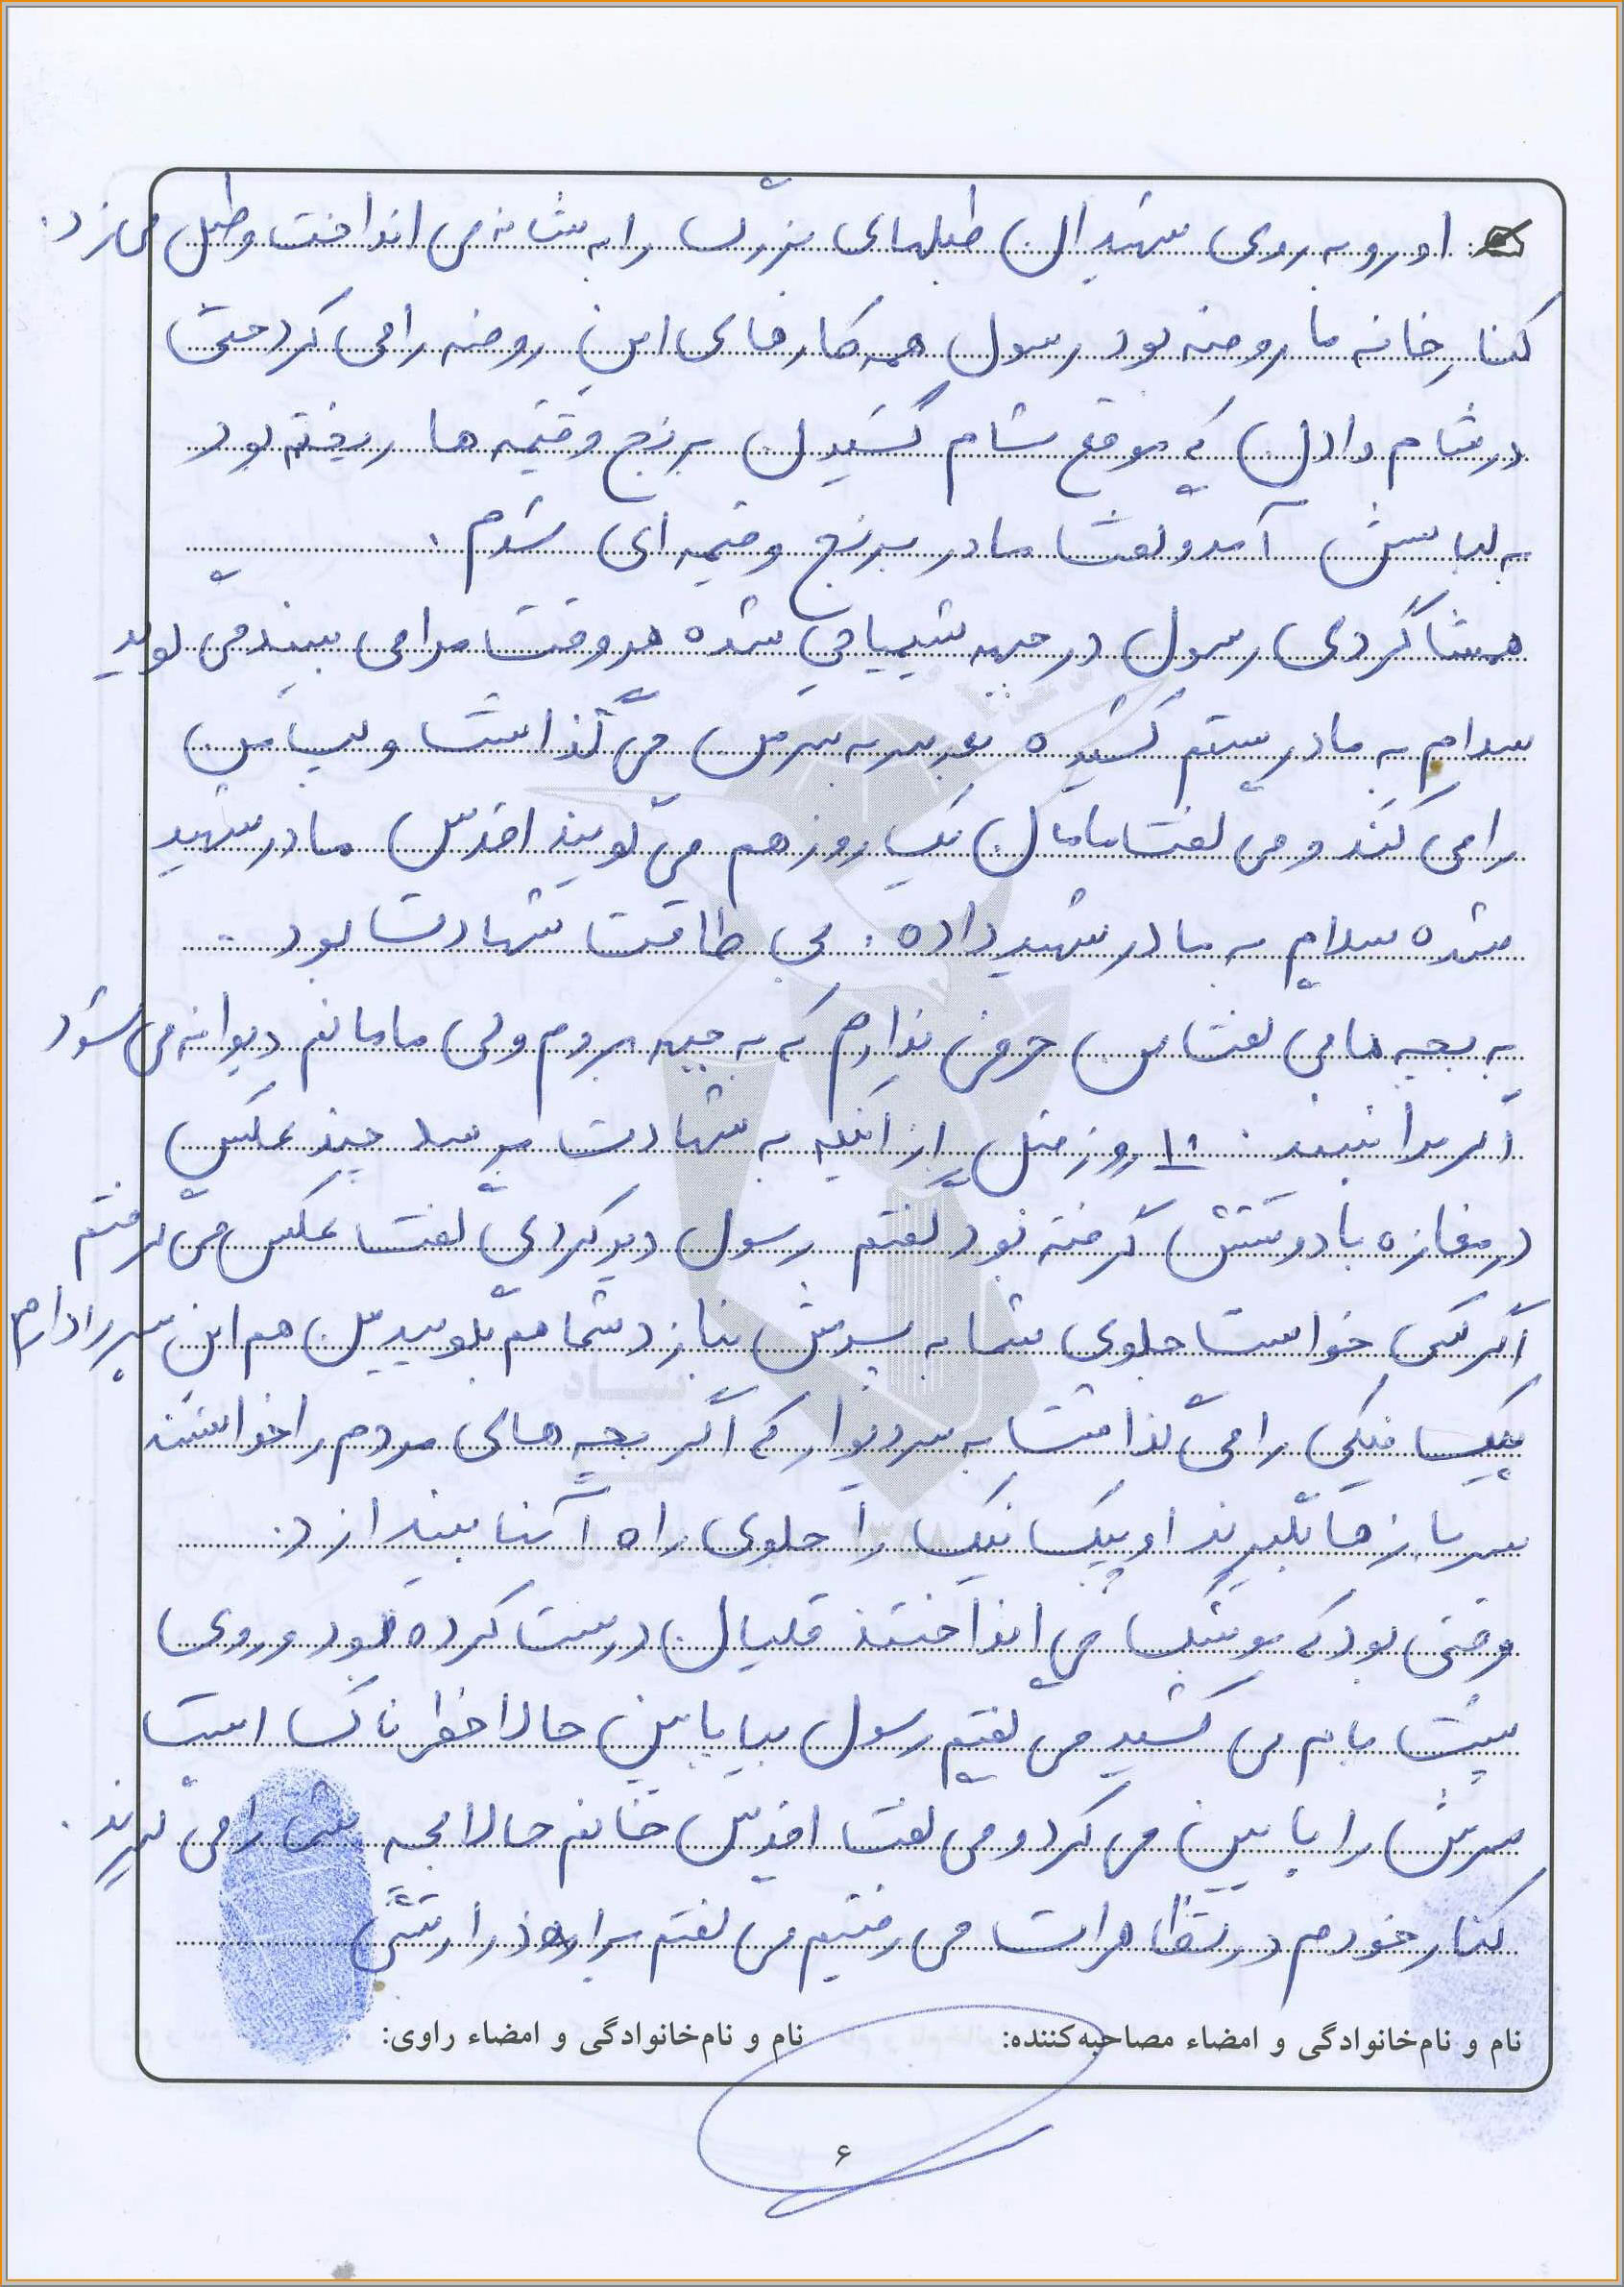 او روبه روی شهیدان طبلهای بزرگ را به شانه می انداخت و طبل می زد.
کنار خانه ما روضه بود رسول همه کارهای این روضه را می کرد حتی
در شام دادن که موقع شام کشیدن برنج و قیمه ها ریخته بود
به لباسش آمد و گفت مادر برنج و قیمه ای شدم.
همشاگردی رسول در جبهه شیمیایی شده هر وقت مرا می بیند می گوید
سلام به مادر ستم کشیده سر به سر من می گذاشت و لباس من
را می کشد و می گفت مامان یک روز هم می گویند اقدس مادر شهید
شده سلام به مادر شهید داده. بی طاقت شهادت بود.
به بچه ها می گفت من حرفی ندارم که به جبهه بروم ولی مامانم دیوانه می شود
اگر مرا نبیند. ۱۰ روز قبل از اینکه به شهادت برسد چند عکس
در مغازه با دوستش گرفته بود گفتم رسول دیر کردی گفت عکس می گرفتم
اگر کسی خواست جلوی شما به پسرش بنازد شما هم بگویید من هم این پسر را دارم
پیک نیکی را می گذاشت به سر دیوار که اگر بچه های مردم را خواستند
سربازها بگیرند او پیک نیک را جلوی راه آنها بیندازد.
وقتی بود که موشک می انداختند قلیان درست کرده بود و روی
پشت بام می کشید می گفتیم رسول بیا پایین حالا خطرناک است
سرش را پایین می کرد و می گفت اقدس خانم حالا بچه اش را می گیرند.
کنار خودم در تظاهرات می رفتیم می گفتم برادر ارتشی
نام و نام‌خانوادگی و امضاء مصاحبه‌کننده: نام و نام‌خانوادگی و امضاء راوی:
۶